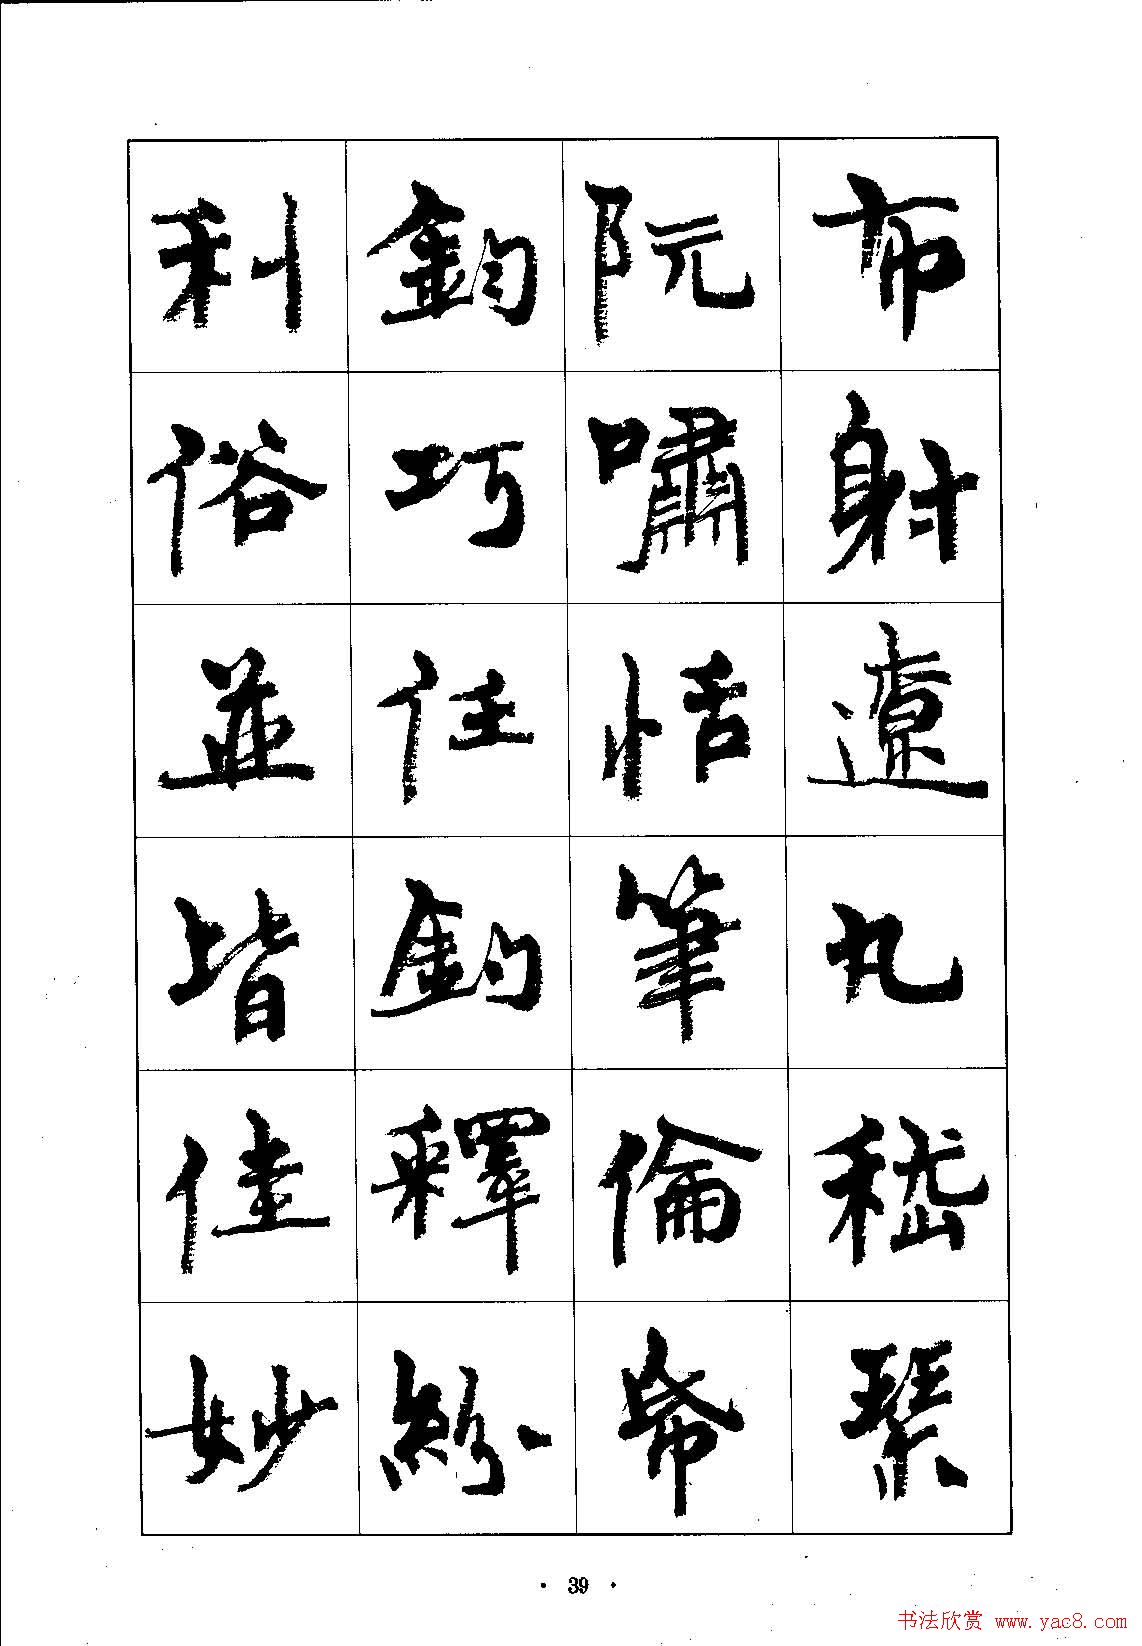 布射遼丸嵇琴
阮嘯恬筆倫㡀
鈞巧任釣釋紛
利俗並皆佳妙
· 39 ·
书法欣赏 www.yac8.com